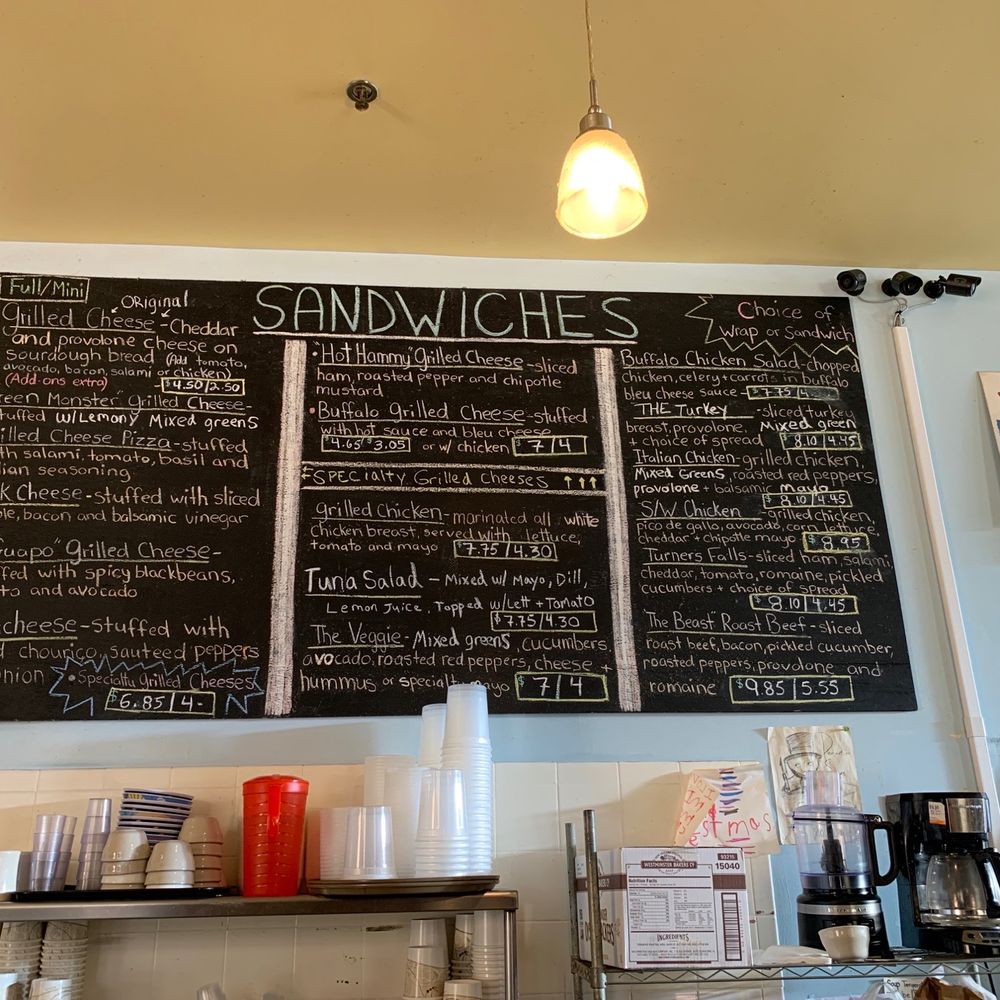 Full/Mini
SANDWICHES
Original
Grilled Cheese - Cheddar
and provolone cheese on
sourdough bread (Add tomato,
avocado, bacon, salami or chicken)
(Add-ons extra) $4.50/2.50
een Monster" Grilled Cheese -
tuffed w/Lemony Mixed greens
illed Cheese Pizza - stuffed
th salami, tomato, basil and
lian seasoning
k Cheese - stuffed with sliced
ple, bacon and balsamic vinegar
uapo" Grilled Cheese -
fed with spicy blackbeans,
to and avocado
cheese - stuffed with
d chourico, sauteed peppers
nion
• Specialty Grilled Cheeses
$6.85/4-
"Hot Hammy" Grilled Cheese - sliced
ham, roasted pepper and chipotle
mustard
• Buffalo Grilled Cheese - stuffed
with hot sauce and bleu cheese
$4.65 $3.05 or w/ chicken $7/4
Specialty Grilled Cheeses ↑↑↑
Grilled Chicken - marinated all white
chicken breast, served with lettuce,
tomato and mayo $7.75/4.30
Tuna Salad - Mixed w/ Mayo, Dill,
Lemon Juice, Topped w/Lett + Tomato
$7.75/4.30
The Veggie - Mixed greens, cucumbers,
avocado, roasted red peppers, cheese +
hummus or specialty mayo $7/4
Choice of
Wrap or Sandwich
Buffalo Chicken Salad - chopped
chicken, celery + carrots in buffalo
bleu cheese sauce - $7.75/4
THE Turkey - sliced turkey
breast, provolone, Mixed green
+ choice of spread $8.10/4.45
Italian Chicken - grilled chicken,
Mixed Greens, roasted red peppers,
provolone + balsamic mayo
$8.10/4.45
S/W Chicken - grilled chicken,
pico de gallo, avocado, corn, lettuce,
cheddar + chipotle mayo $8.95
Turners Falls - sliced ham, salami,
cheddar, tomato, romaine, pickled
cucumbers + choice of spread
$8.10/4.45
The Beast Roast Beef - sliced
roast beef, bacon, pickled cucumber,
roasted peppers, provolone and
romaine $9.85/5.55
WESTMINSTER BAKERS CO
93215
15040
Nutrition Facts
INGREDIENTS